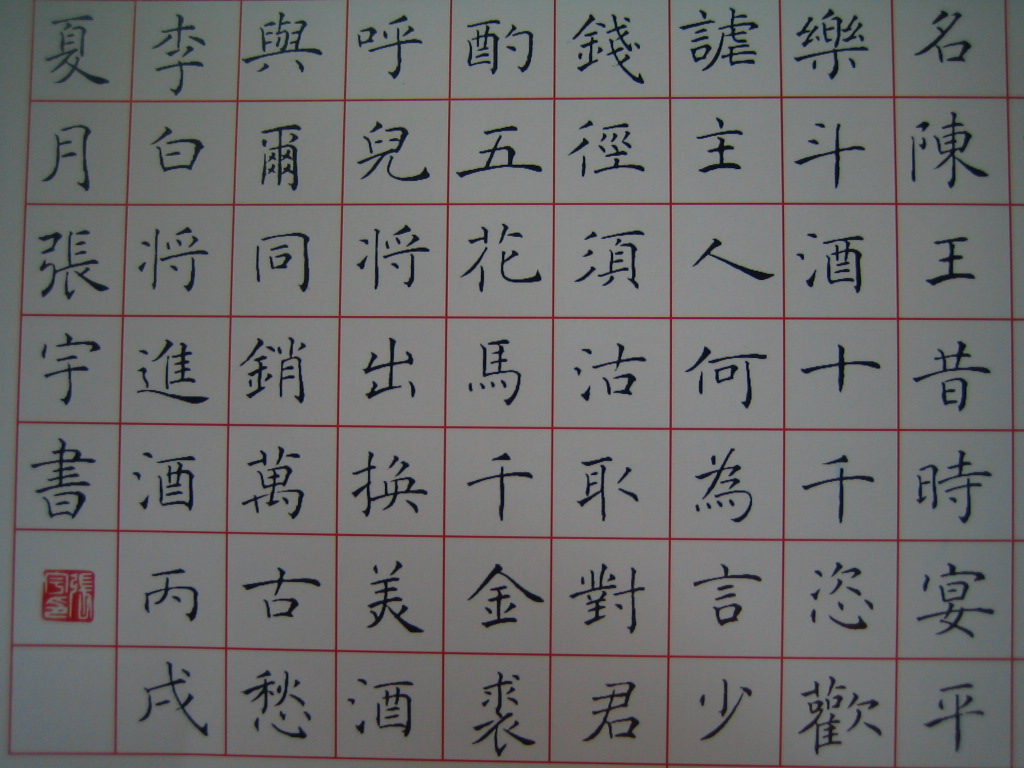 名陳王昔時宴平
樂斗酒十千恣歡
謔主人何為言少
錢徑須沽取對君
酌五花馬千金裘
呼兒將出換美酒
與爾同銷萬古愁
李白將進酒丙戌
夏月張宇書